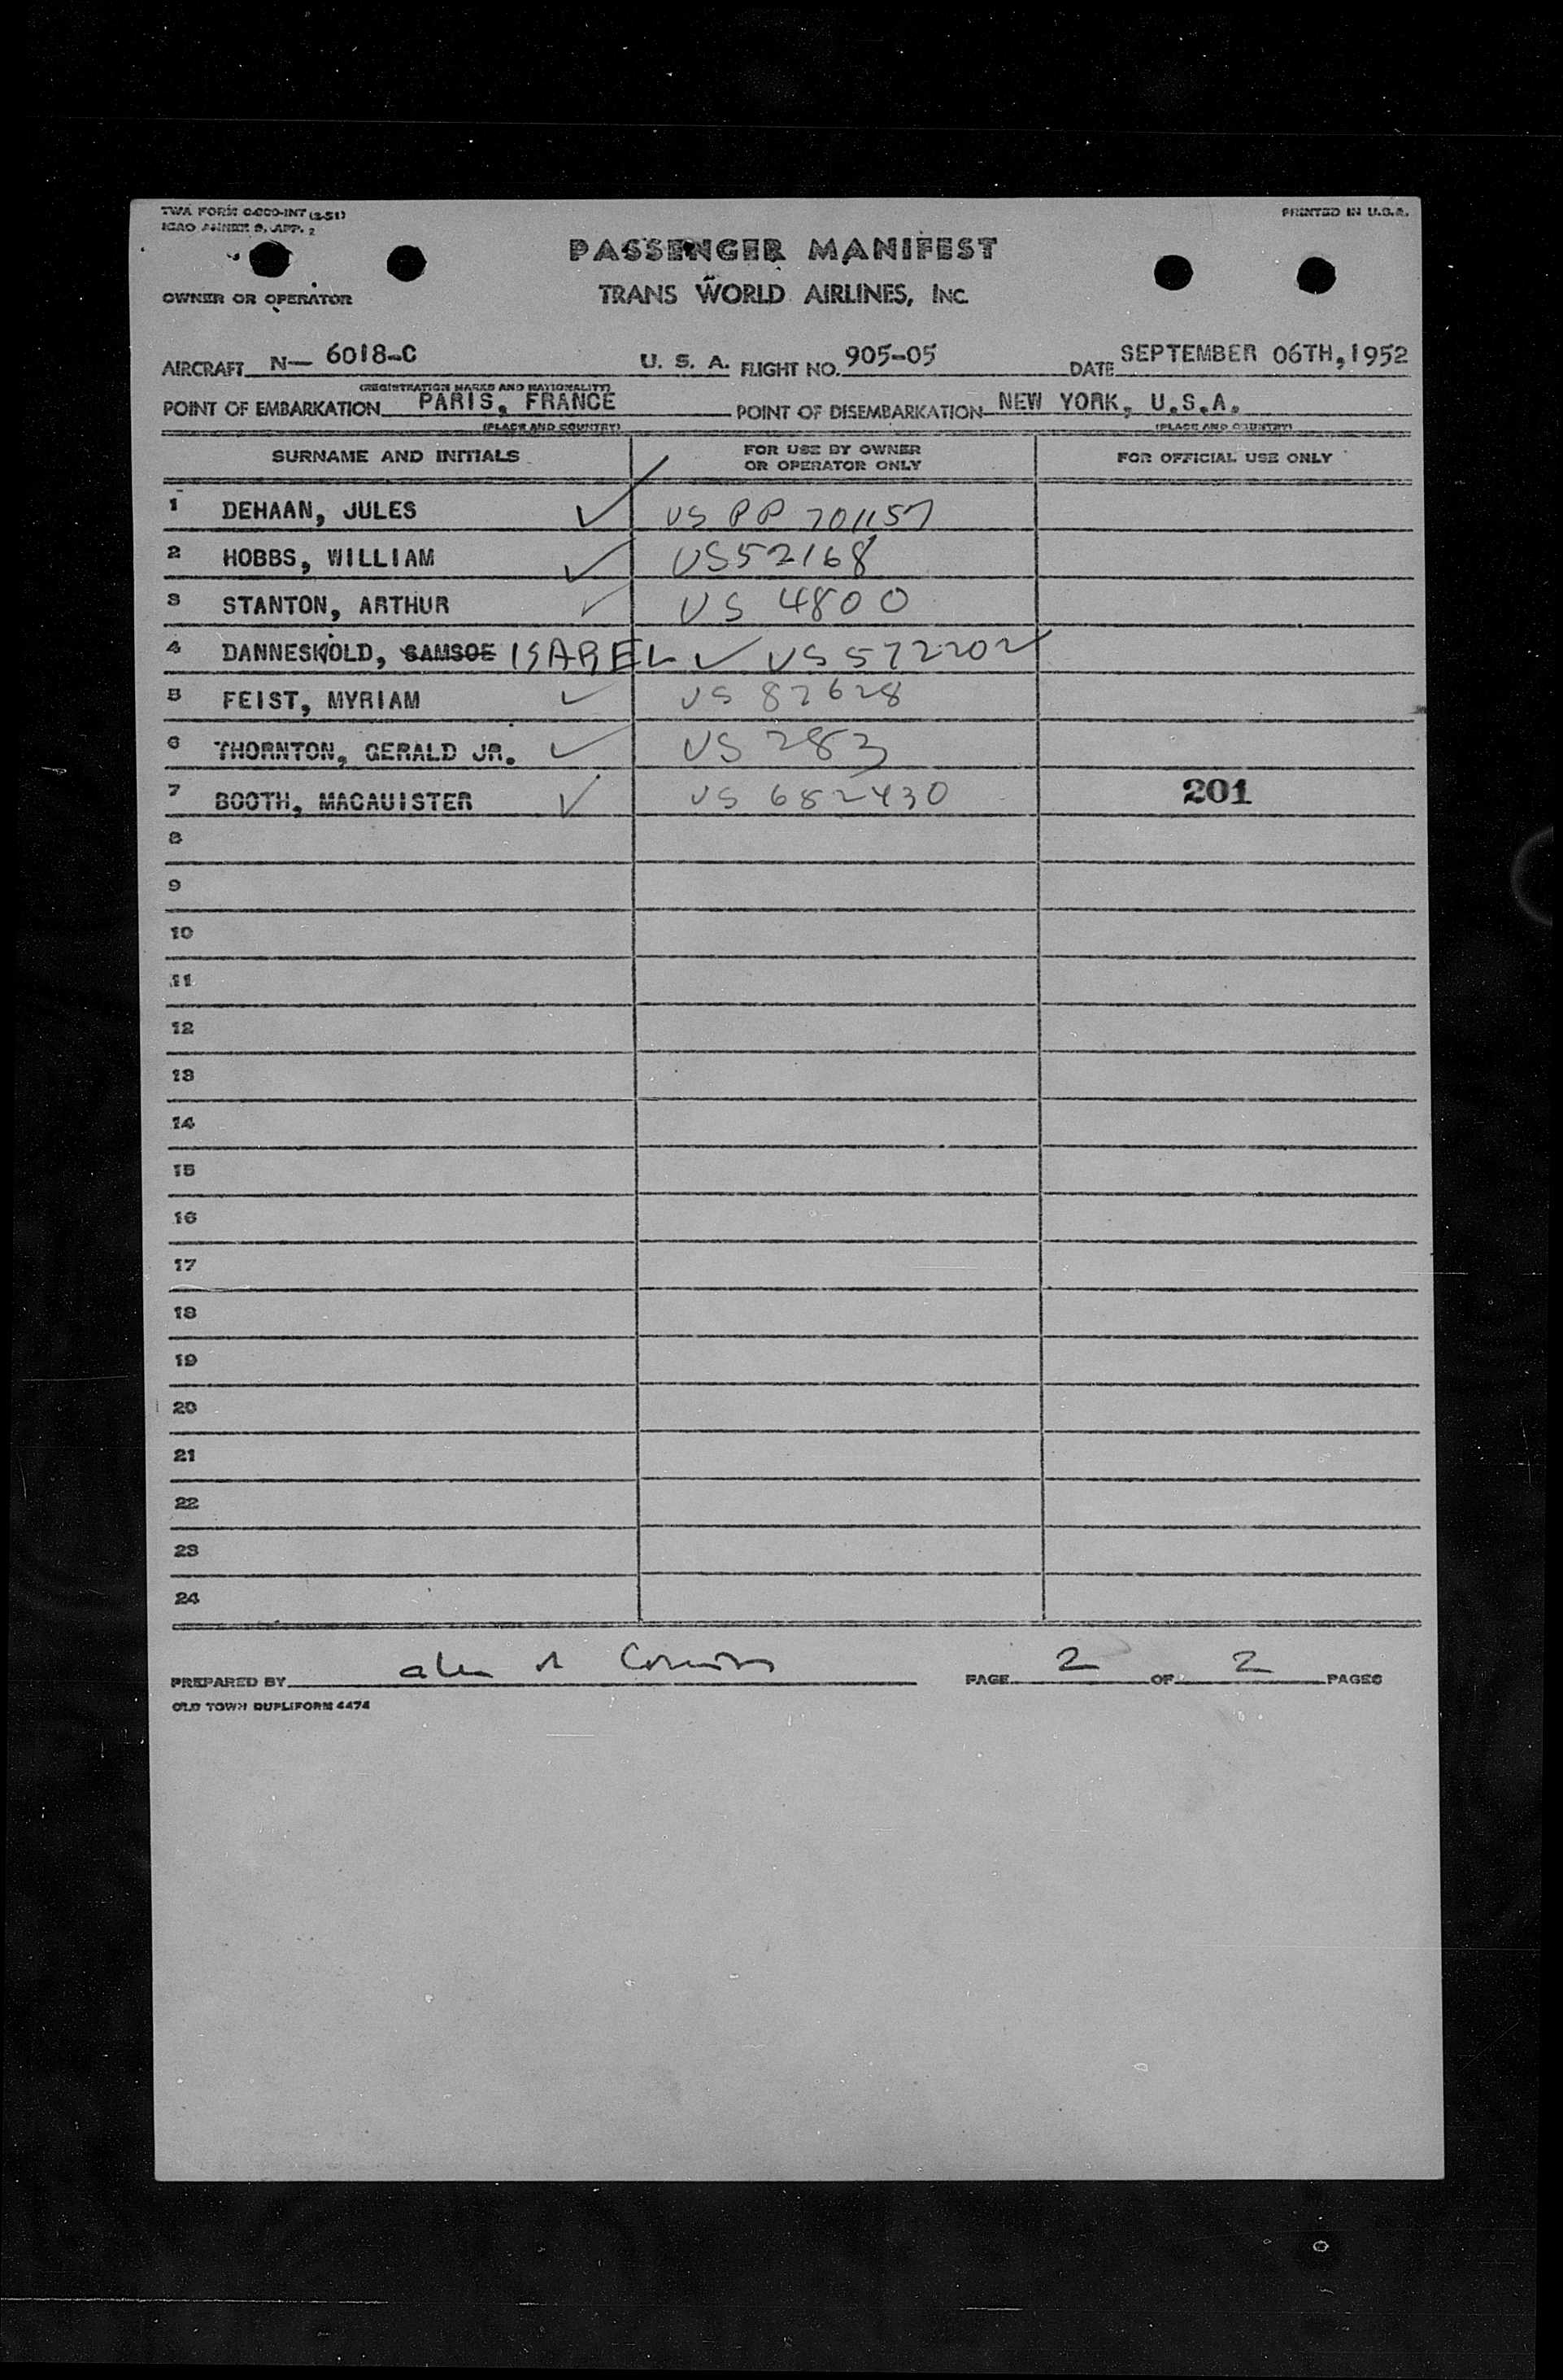 TWA FORM O-000-INT (2-51)
ICAO ANNEX 9, APP. 2
PRINTED IN U.S.A.
PASSENGER MANIFEST
OWNER OR OPERATOR
TRANS WORLD AIRLINES, INC.
AIRCRAFT N— 6018-C U. S. A. FLIGHT NO. 905-05 DATE SEPTEMBER 06TH,1952
(REGISTRATION MARKS AND NATIONALITY)
POINT OF EMBARKATION PARIS, FRANCE POINT OF DISEMBARKATION NEW YORK, U.S.A.
(PLACE AND COUNTRY) (PLACE AND COUNTRY)
SURNAME AND INITIALS FOR USE BY OWNER OR OPERATOR ONLY FOR OFFICIAL USE ONLY
1 DEHAAN, JULES ✓ US PP 701157
2 HOBBS, WILLIAM ✓ US52168
3 STANTON, ARTHUR ✓ US 4800
4 DANNESKIOLD, SAMSOE ISABEL ✓ US 572202 ✓
5 FEIST, MYRIAM ✓ US 82628
6 THORNTON, GERALD JR. ✓ US 283
7 BOOTH, MACAUISTER ✓ US 682430 201
8
9
10
11
12
13
14
15
16
17
18
19
20
21
22
23
24
PREPARED BY PAGE 2 OF 2 PAGES
OLD TOWN DUPLIFORM 4474